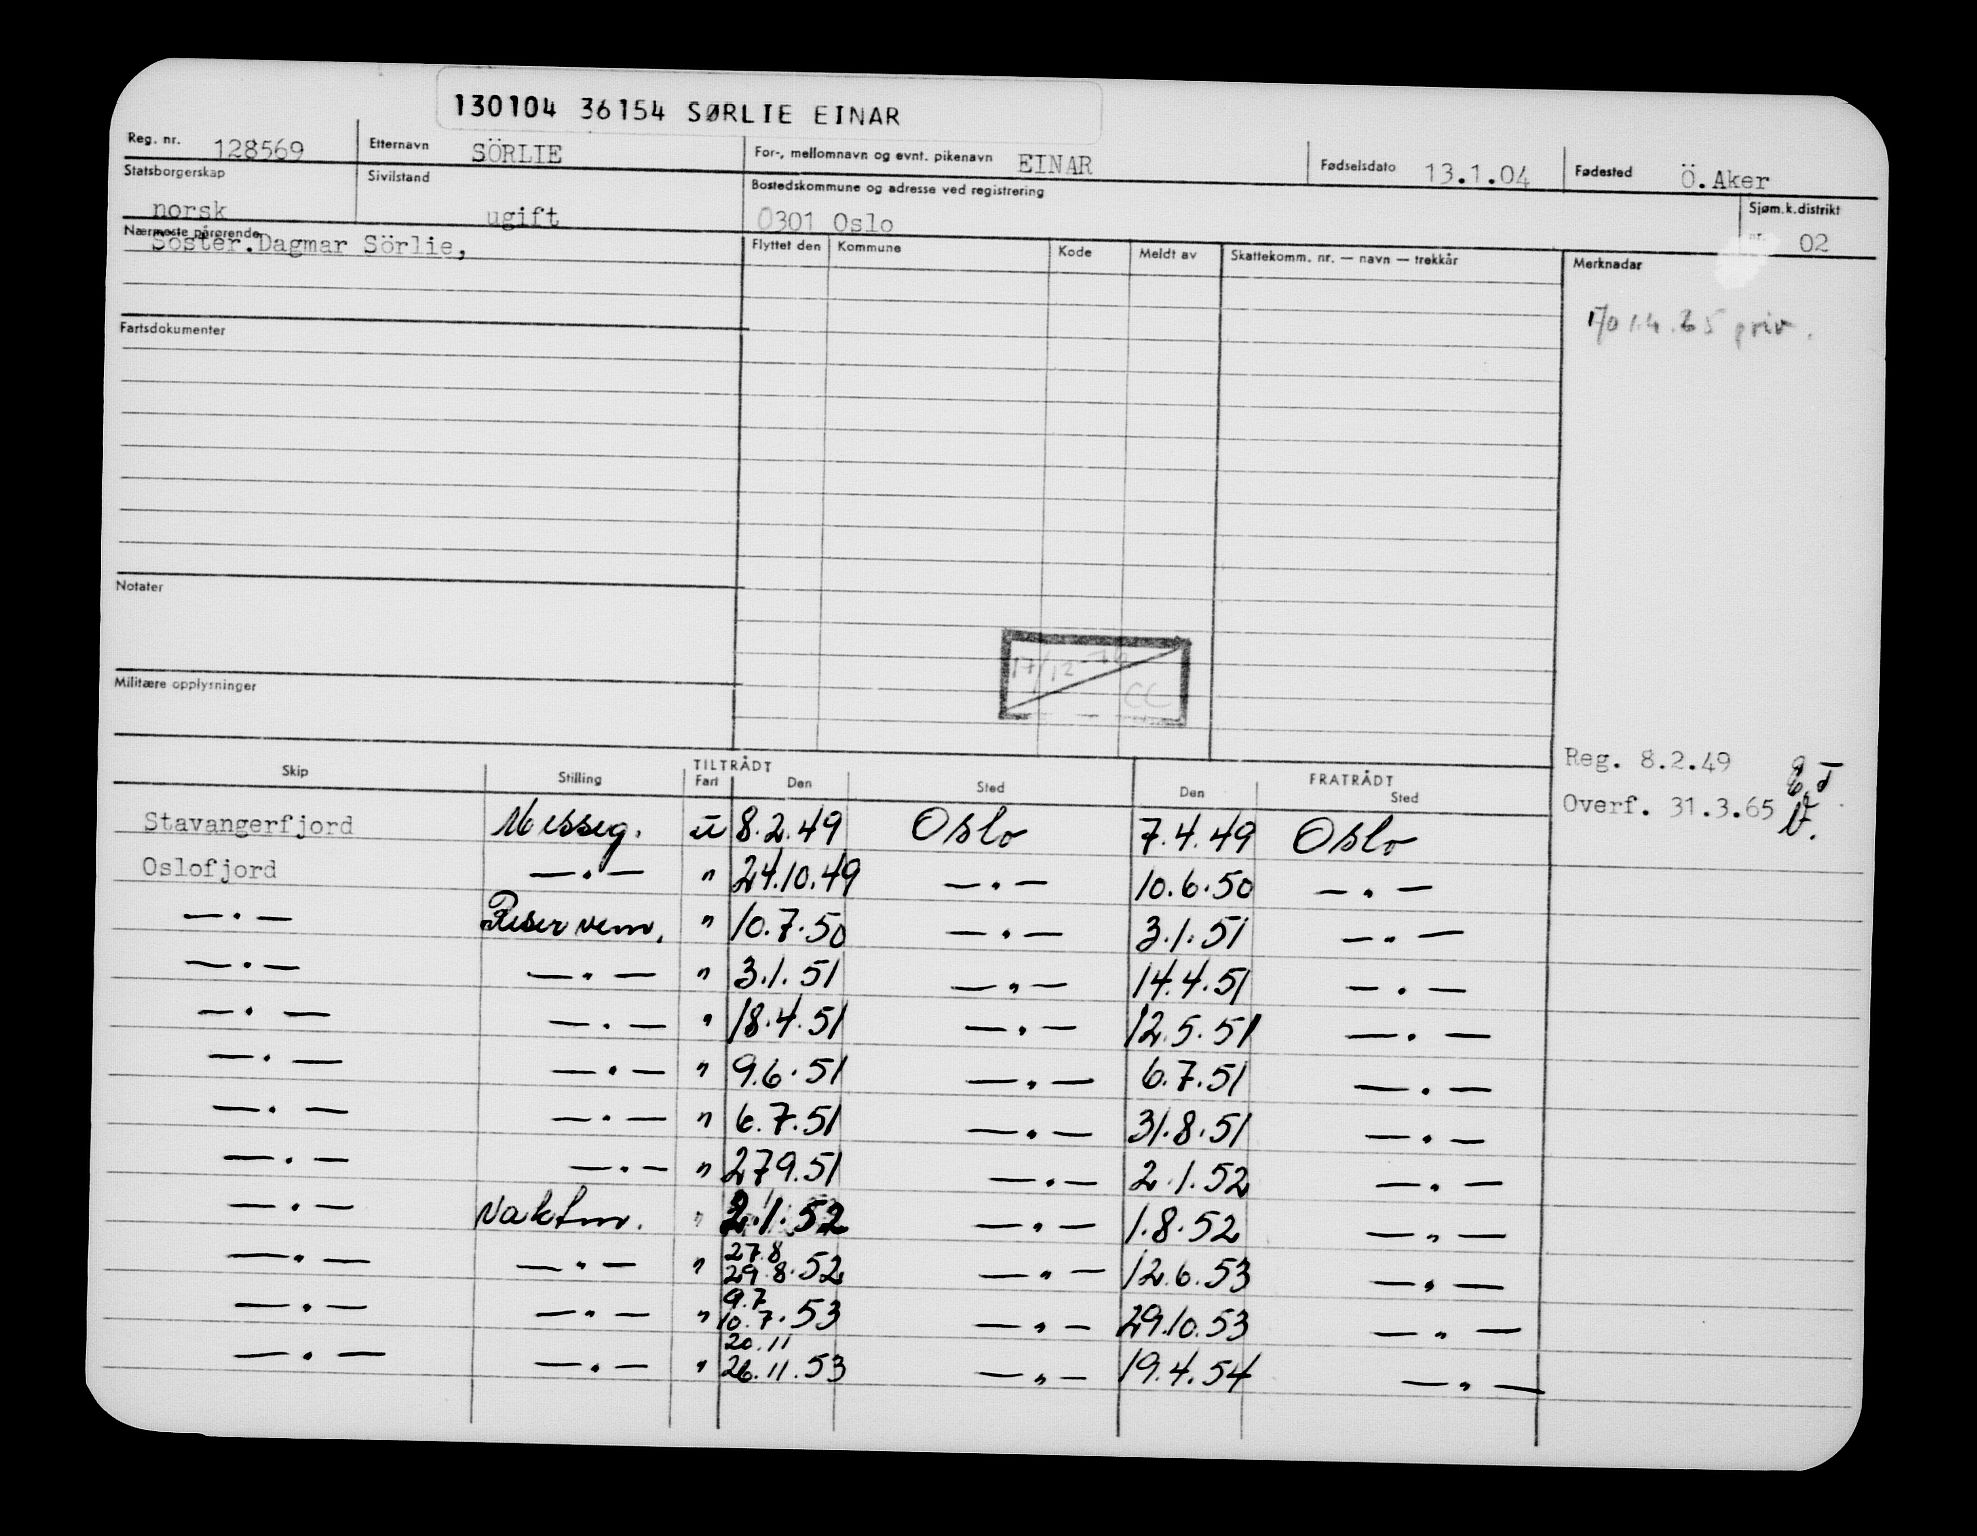 130104 36154 SØRLIE EINAR
Reg. nr. 128569 Etternavn SÖRLIE For-, mellomnavn og evnt. pikenavn EINAR Fødselsdato 13.1.04 Fødested Ö.Aker
Statsborgerskap norsk Sivilstand ugift Bostedskommune og adresse ved registrering 0301 Oslo Sjøm.k.distrikt nr. 02
Nærmeste pårørende Söster.Dagmar Sörlie, Flyttet den Kommune Kode Meldt av Skattekomm. nr. — navn — trekkår Merknadar
1.4.65 priv.
Fartsdokumenter
Notater
17/12-76
CC
Militære opplysninger
Reg. 8.2.49
Overf. 31.3.65
TILTRÅDT FRATRÅDT
Skip Stilling Fart Den Sted Den Sted
Stavangerfjord Messeg. u 8.2.49 Oslo 7.4.49 Oslo
Oslofjord —„— " 24.10.49 —„— 10.6.50 —„—
—„— Reservem. " 10.7.50 —„— 3.1.51 —„—
—„— —„— " 3.1.51 —„— 14.4.51 —„—
—„— —„— " 18.4.51 —„— 12.5.51 —„—
—„— —„— " 9.6.51 —„— 6.7.51 —„—
—„— —„— " 6.7.51 —„— 31.8.51 —„—
—„— —„— " 27 9.51 —„— 2.1.52 —„—
—„— Vaktm. " 2.1.52 —„— 1.8.52 —„—
27.8
—„— —„— " 29.8.52 —„— 12.6.53 —„—
9.7
—„— —„— " 10.7.53 —„— 29.10.53 —„—
20.11
—„— —„— " 26.11.53 —„— 19.4.54 —„—